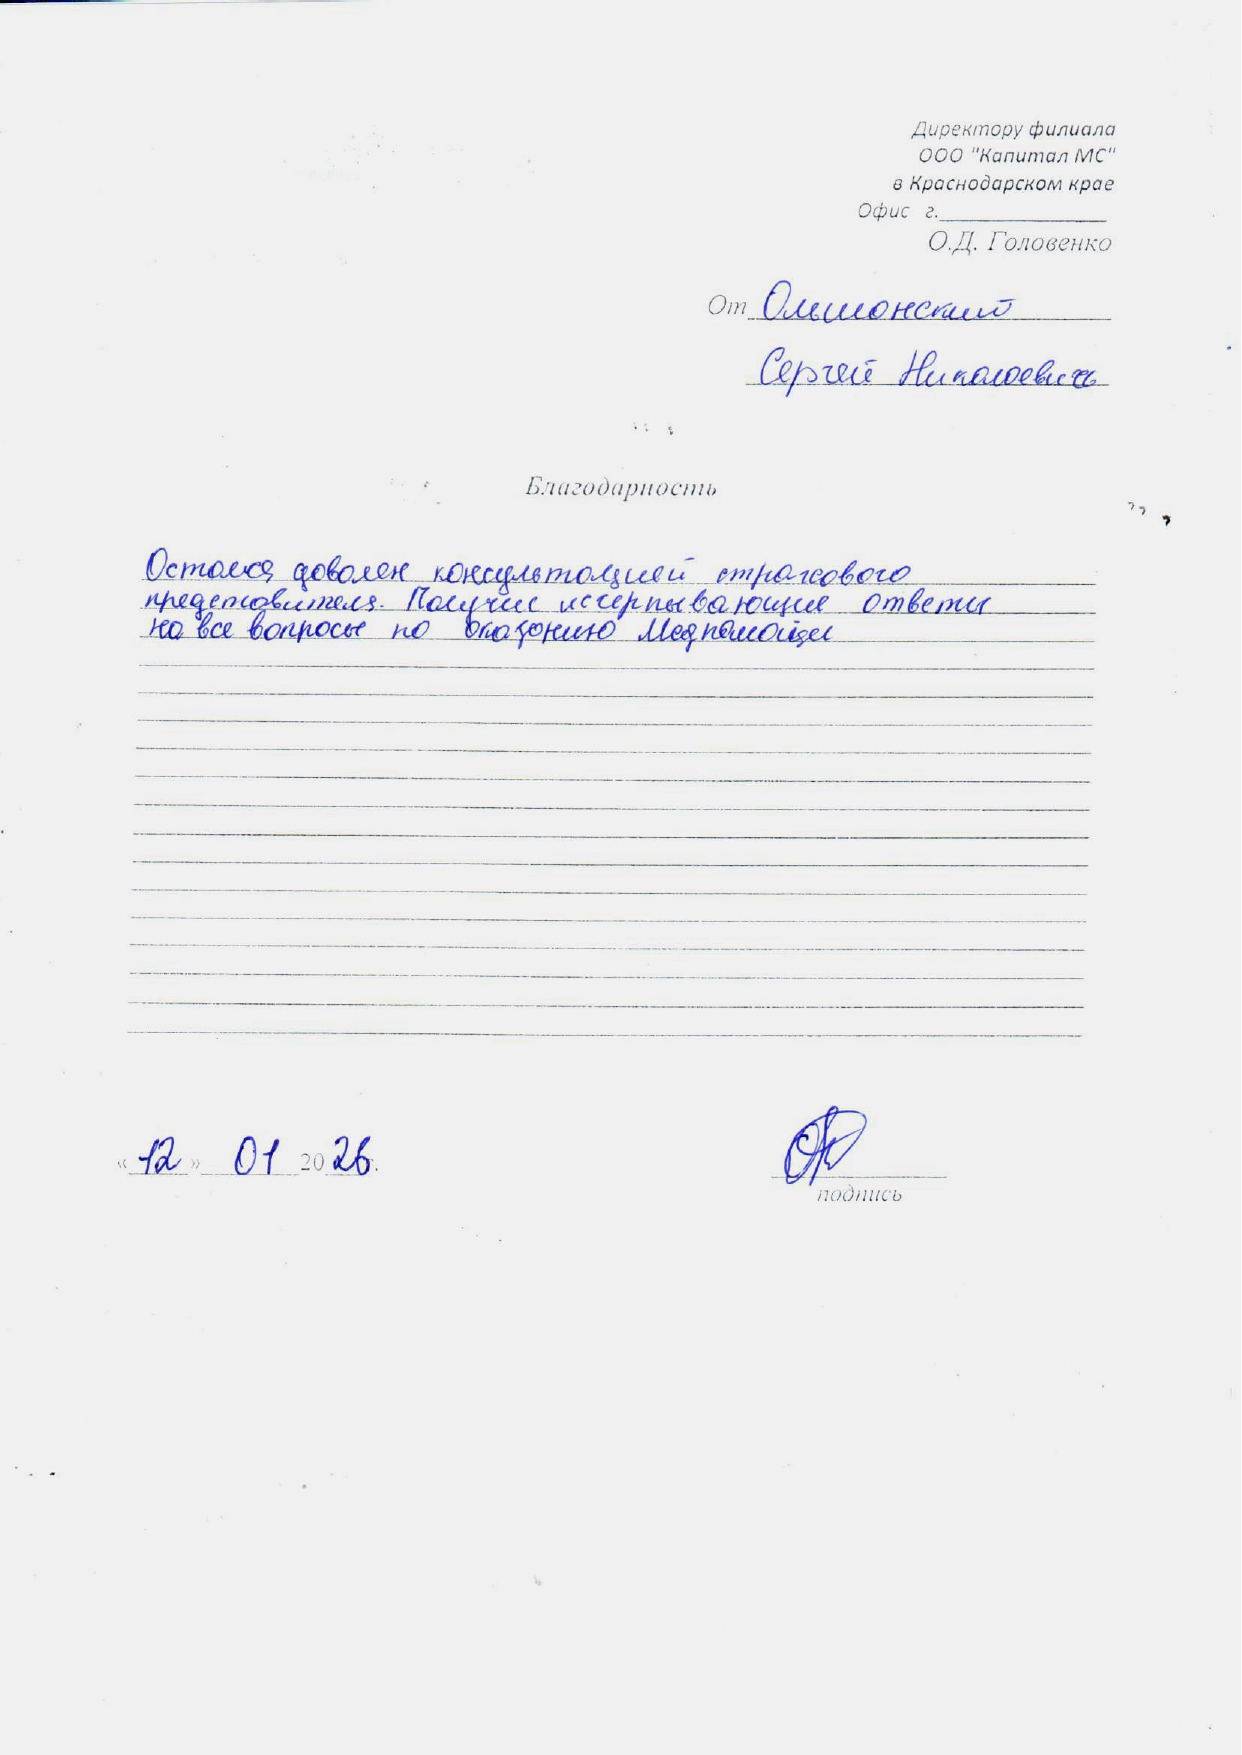 Директору филиала
ООО "Капитал МС"
в Краснодарском крае
Офис г.
О.Д. Головенко
От Ольшонский
Сергей Николоевич
Благодарность
Остался доволен консультацией страхового
представителя. Получил исчерпывающие ответы
на все вопросы по оказанию Медпомощи
« 12 » 01 2026.
подпись